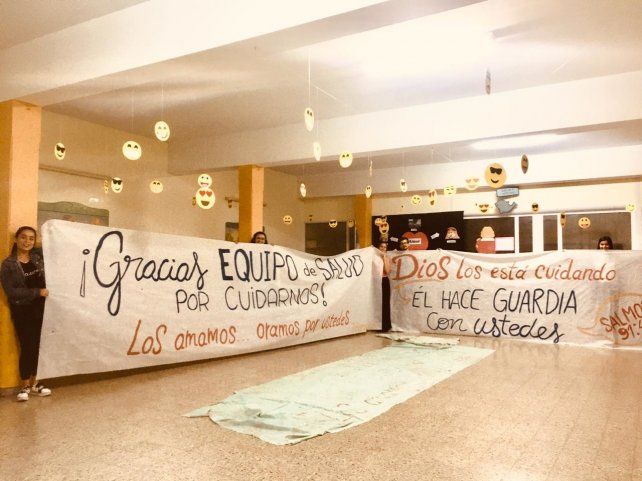 ¡Gracias EQUIPO de SALUD
POR CUIDARNOS!
Los amamos... oramos por ustedes
Dios los está cuidando
ÉL HACE GUARDIA
con ustedes
SALMO
91: